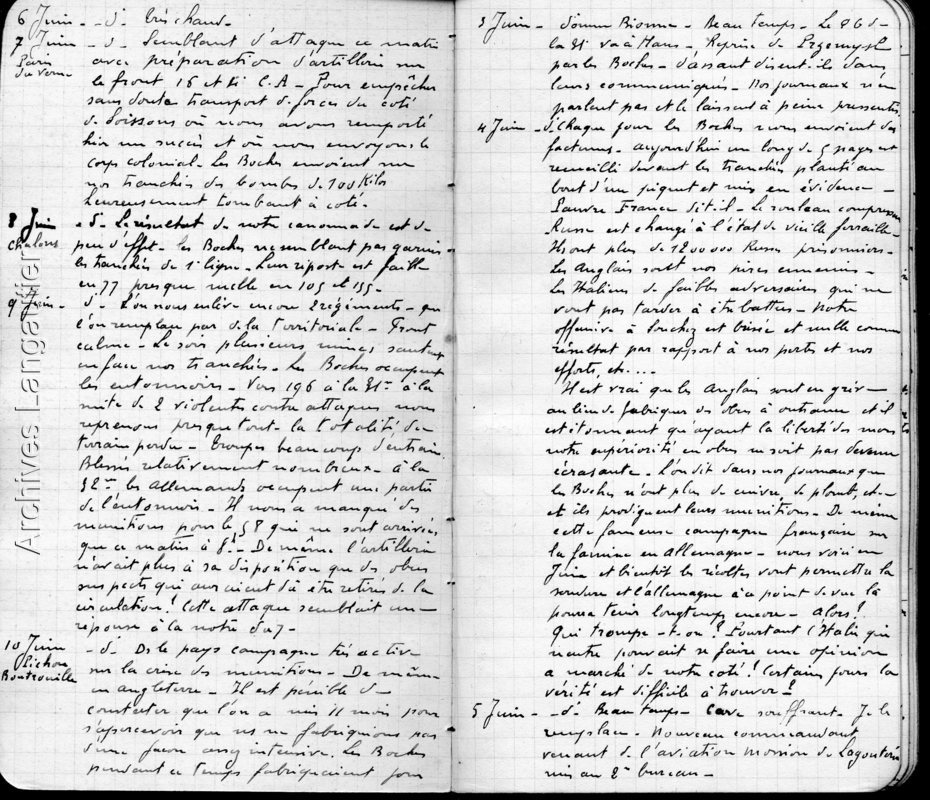 6 Juin - d° très chaud -
7 Juin - d° Semblant d'attaque ce matin
avec préparation d'artillerie sur
le front 16 et C.A - Pour empêcher
sans doute transport de forces du coté
de Soissons où nous avons remporté
hier un succès et où nous envoyons le
corps colonial - Les Boches envoient sur
nos tranchées des bombes de 100 Kilos
heureusement tombant à coté -
8 Juin - d° Le résultat de notre canonnade est de
Chalons
peu d'effet - les Boches ne semblant pas garnir
les tranchées de 1e ligne - Leur riposte est faible
en 77 presque nulle en 105 et 135 -
9 Juin - d° L'on nous enlève encore 2 régiments - que
l'on remplace par de la territoriale - Front
calme - Le soir plusieurs mines sautent
en face nos tranchées - Les Boches occupent
les entonnoirs - Vers 196 à la à la
suite de 2 violentes contre attaques nous
reprenons presque tout - la totalité du
terrain perdu - Troupes beaucoup d'entrain
Blessés relativement nombreux - à la
les Allemands occupent une partie
de l'entonnoir - Il nous a manqué des
munitions pour le 58 qui ne sont arrivées
que ce matin à 8h - De même l'artillerie
n'avait plus à sa disposition que des obus
suspects qui auraient dû être retirés de la
circulation ! Cette attaque semblait une
réponse à la notre du 7 -
10 Juin - d° Ds le pays campagne très active
sur la crise des munitions - De même
en angleterre - Il est pénible de
constater que l'on a mis 11 mois pour
s'apercevoir que ns ne fabriquions pas
d'une façon assez intensive. Les Boches
pendant ce temps fabriquaient pour
3 Juin - Somme Bionne - Beau temps - Le 86 de
la va à Hans - Reprise de Przemysl
par les Boches - d'assaut disent-ils dans
leurs communiqués - Nos journaux n'en
parlent pas et le laissent à peine pressentir
4 Juin - d° Chaque jour les Boches nous envoient des
factures - aujourd'hui un long de 5 pages est
recueilli devant les tranchées planté au
bout d'un piquet et mis en évidence -
Pauvre France dit-il - Le rouleau compresseur
Russe est changé à l'état de vieille ferraille -
Ils ont plus de 1200000 Russes prisonniers -
Les Anglais sont nos pires ennemis -
les Italiens de faibles adversaires qui ne
vont pas tarder à être battus - Notre
offensive à Souchez est brisée et nulle comme
résultat par rapport à nos pertes et nos
efforts, etc....
Il est vrai que les Anglais sont en grève
au lieu de fabriquer des obus à outrance et il
est étonnant qu'ayant la liberté des mers
notre supériorité en obus ne soit pas devenue
écrasante - L'on dit dans nos journaux que
les Boches n'ont plus de cuivre, de plomb, etc -
et ils prodiguent leurs munitions - De même
cette fameuse campagne française sur
la famine en Allemagne - nous voici en
Juin et bientôt les récoltes vont permettre la
soudure et l'allemagne à ce point de vue là
pourra tenir longtemps encore - alors ?
Qui trompe-t-on ? Pourtant l'Italie qui
neutre pouvait se faire une opinion
a marché de notre coté ! Certains jours la
vérité est difficile à trouver !
5 Juin - d° Beau temps - Cave souffrant - Je le
remplace - Nouveau commandant
venant de l'aviation
mis au 2e bureau -
Archives Langautier